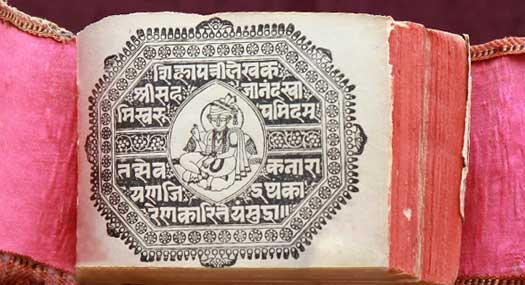 शिक्षापत्रीलेखक
श्रीसह जानंदस्वा
मिस्वरू पमिदम्
तत्सेव कनारा
यणजि
रेणकारितेयंमुद्रा॥